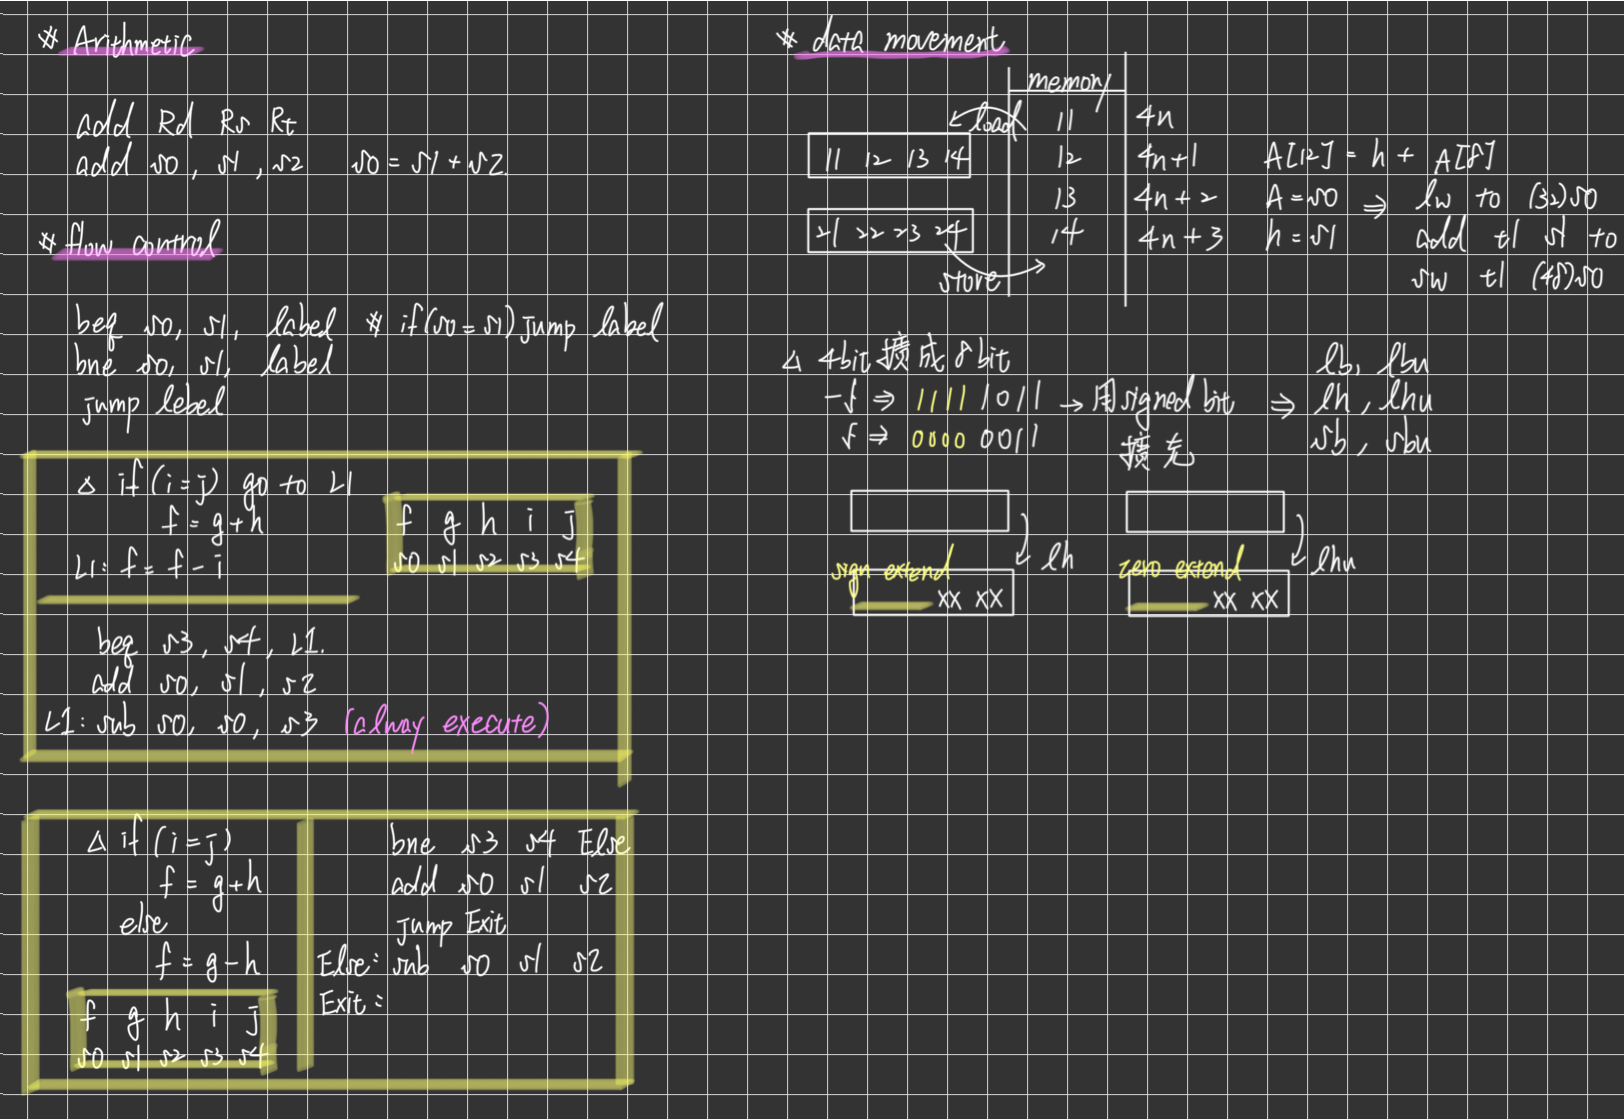 * Arithmetic
add Rd Rs Rt
add s0, s1, s2 s0 = s1 + s2.
* flow control
beq s0, s1, label * if(s0 = s1) jump label
bne s0, s1, label
jump lebel
△ if (i=j) go to L1
f = g+h
L1: f = f - i
f g h i j
s0 s1 s2 s3 s4
beq s3, s4, L1.
add s0, s1, s2
L1: sub s0, s0, s3 (alway execute)
△ if (i=j)
f = g+h
else
f = g-h
f g h i j
s0 s1 s2 s3 s4
bne s3 s4 Else
add s0 s1 s2
jump Exit
Else: sub s0 s1 s2
Exit:
* data movement
memory
load
11 12 13 14
21 22 23 24
store
11 4n
12 4n+1
13 4n+2
14 4n+3
A[12] = h + A[8]
A = s0 ⇒ lw t0 (32)s0
h = s1 add t1 s1 t0
sw t1 (48)s0
△ 4bit 擴成 8bit
-5 ⇒ 1111 1011 → 用 signed bit ⇒
5 ⇒ 0000 0011 擴充
lb, lbu
lh, lhu
sb, sbu
lh
sign extend
XX XX
lhu
zero extend
XX XX